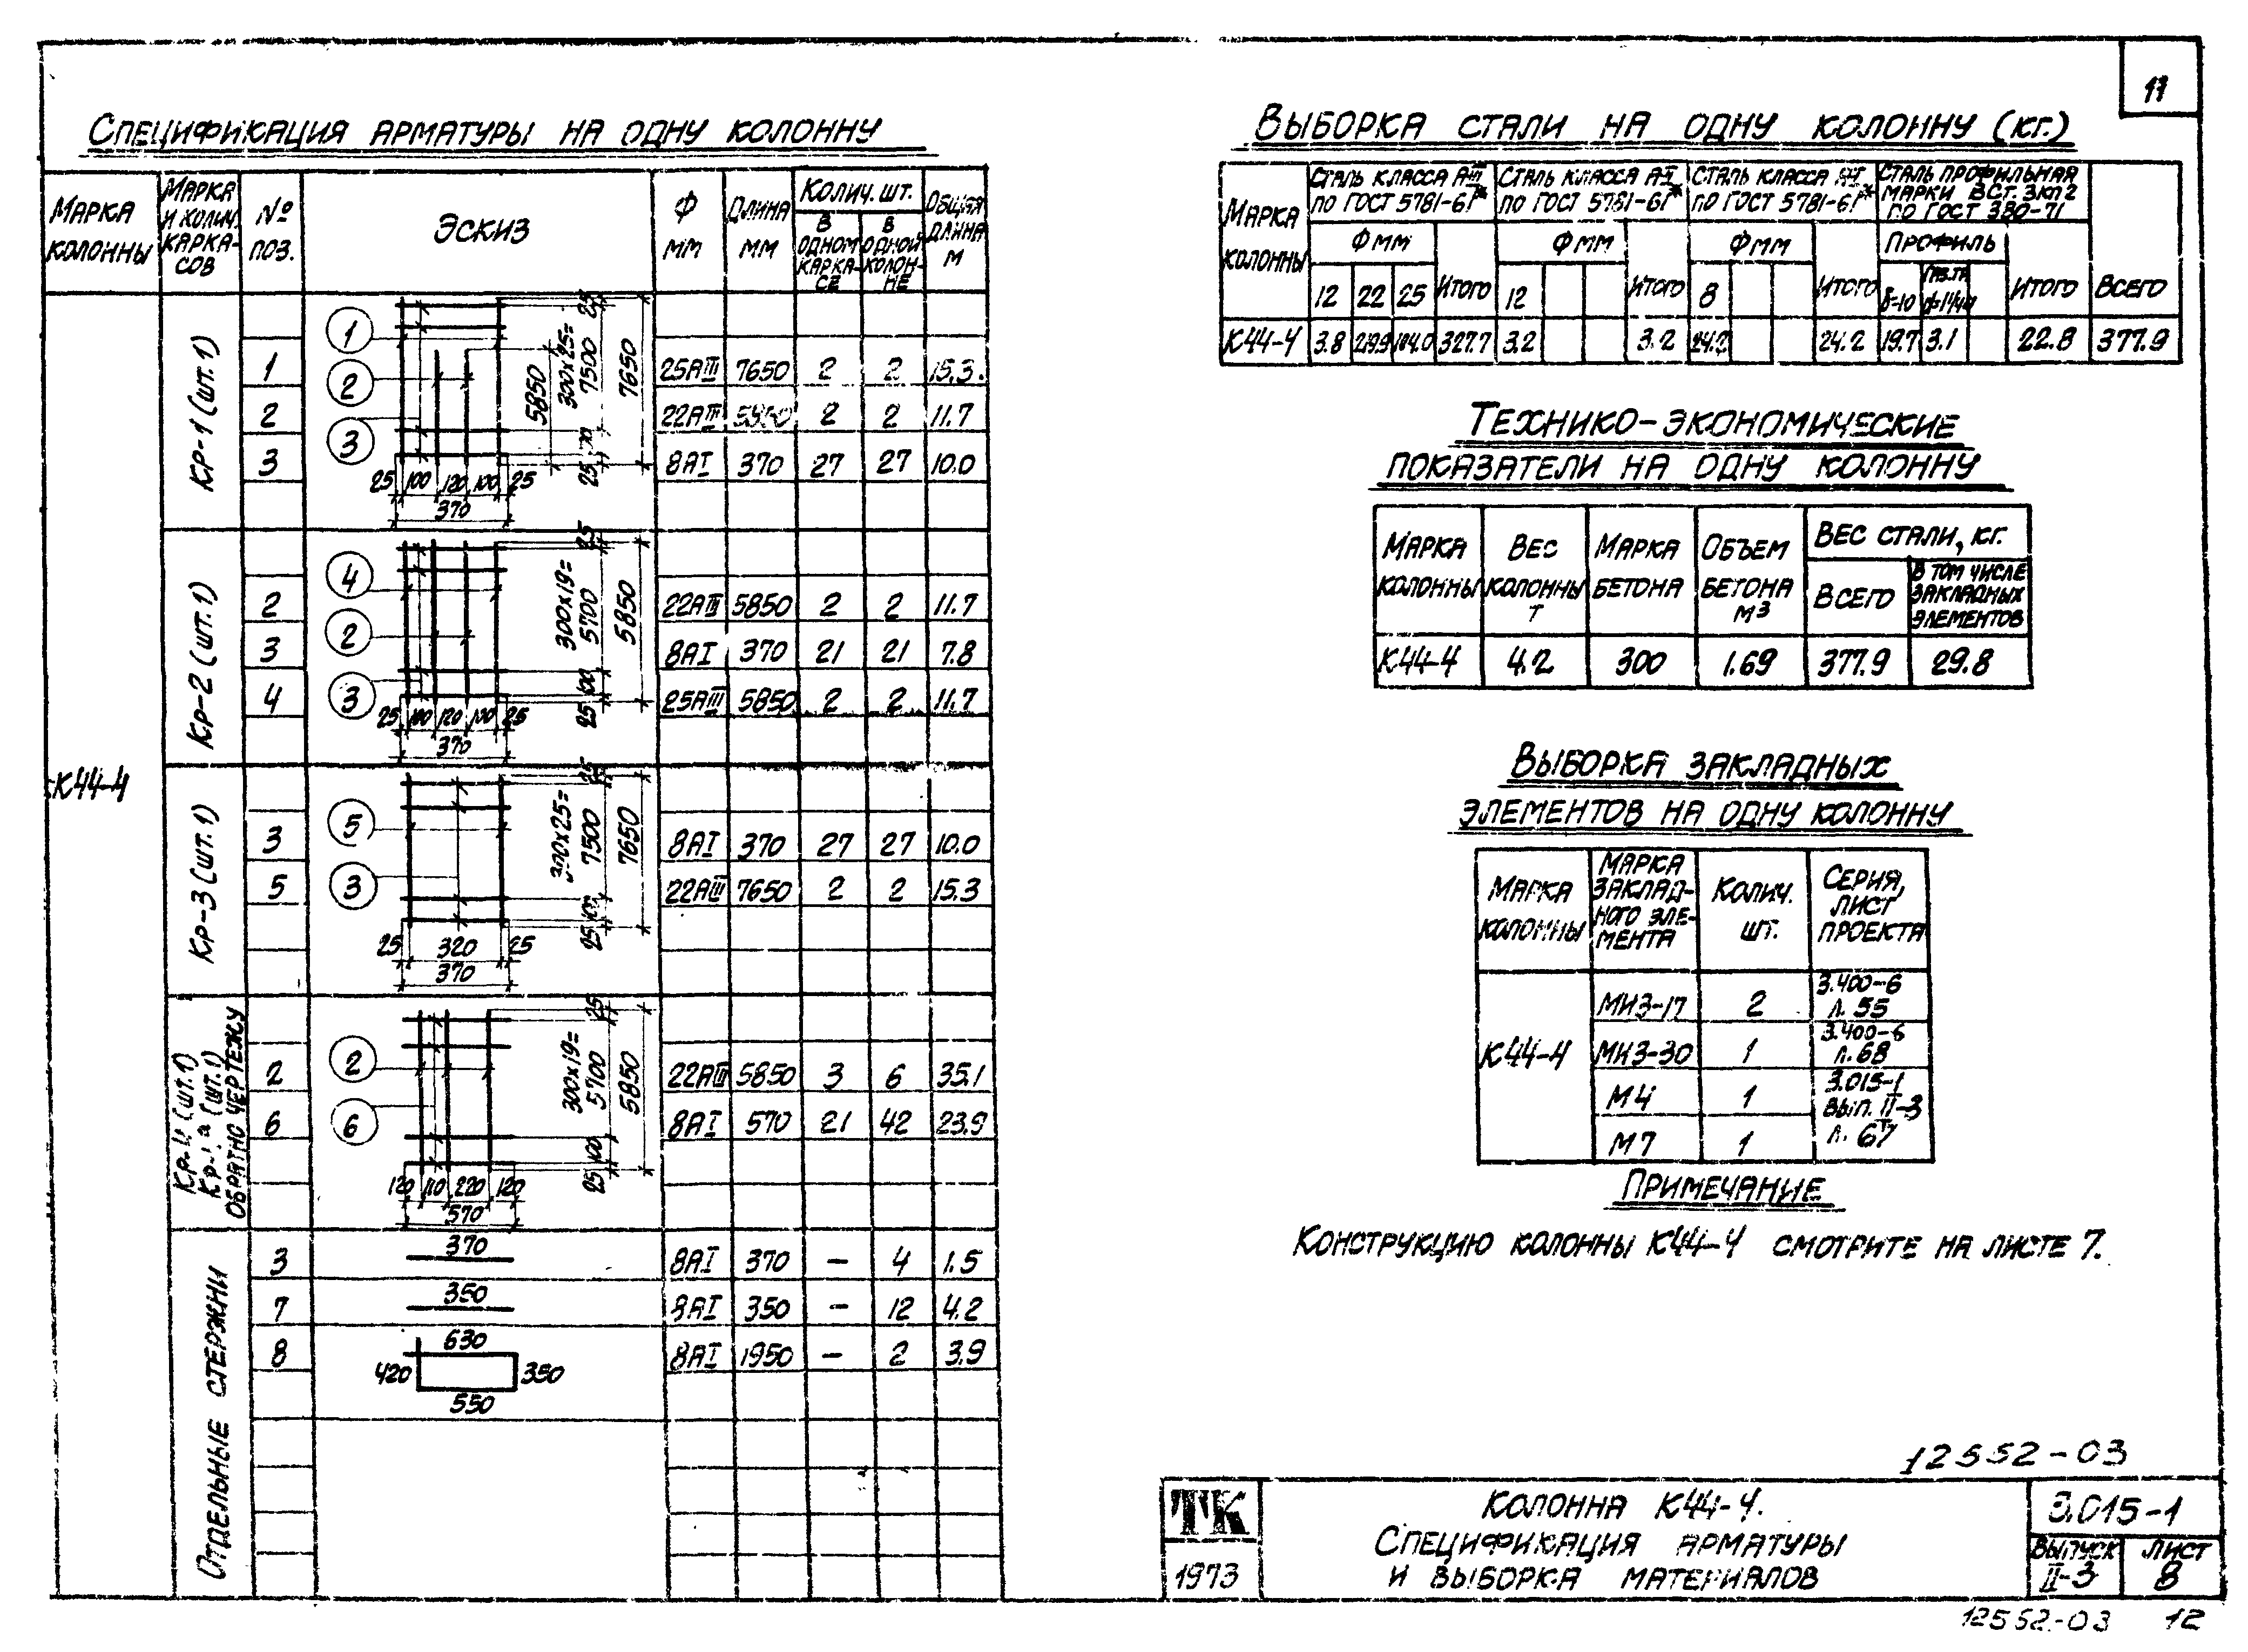 11
Спецификация арматуры на одну колонну
Марка колонны | Марка и колич. каркасов | № поз. | Эскиз | Ф мм | Длина мм | Колич. шт. | Общая длина м
в одном каркасе | в одной колонне
К44-4
Кр-1 (шт. 1)
1 | 25АIII | 7650 | 2 | 2 | 15.3
2 | 22АIII | 5850 | 2 | 2 | 11.7
3 | 8АI | 370 | 27 | 27 | 10.0
1 2 3
25 300x25= 7500 7650 5850 25
25 100 120 100 25
370
Кр-2 (шт. 1)
2 | 22АIII | 5850 | 2 | 2 | 11.7
3 | 8АI | 370 | 21 | 21 | 7.8
4 | 25АIII | 5850 | 2 | 2 | 11.7
4 2 3
25 300x19= 5700 5850 100 25
25 100 120 100 25
370
Кр-3 (шт. 1)
3 | 8АI | 370 | 27 | 27 | 10.0
5 | 22АIII | 7650 | 2 | 2 | 15.3
5 3
25 300x25= 7500 7650 100 25
25 320 25
370
(шт. 1)
(шт. 1)
обратно чертежу
2 | 22АIII | 5850 | 3 | 6 | 35.1
6 | 8АI | 570 | 21 | 42 | 23.9
2 6
25 300x19= 5700 5850 100 25
120 110 220 120
570
Отдельные стержни
3 | 370 | 8АI | 370 | – | 4 | 1.5
7 | 350 | 8АI | 350 | – | 12 | 4.2
8 | 630 420 350 550 | 8АI | 1950 | – | 2 | 3.9
Выборка стали на одну колонну (кг.)
Марка колонны | Сталь класса АIII по ГОСТ 5781-61* | Сталь класса по ГОСТ 5781-61* | Сталь класса по ГОСТ 5781-61* | Сталь профильная марки ВСт. 3кп2 по ГОСТ 380-71 | Всего
Фмм | Итого | Фмм | Итого | Фмм | Итого | Профиль | Итого
12 | 22 | 25 | 12 | 8 | δ=10
К44-4 | 3.8 | 219.9 | 104.0 | 327.7 | 3.2 | 3.2 | 24.2 | 24.2 | 19.7 | 3.1 | 22.8 | 377.9
Технико-экономические
показатели на одну колонну
Марка колонны | Вес колонны т | Марка бетона | Объем бетона м3 | Вес стали, кг.
Всего | в том числе закладных элементов
К44-4 | 4.2 | 300 | 1.69 | 377.9 | 29.8
Выборка закладных
элементов на одну колонну
Марка колонны | Марка закладного элемента | Колич. шт. | Серия, лист проекта
К44-4 | МИ3-17 | 2 | 3.400-6 л. 55
МИ3-30 | 1 | 3.400-6 л. 68
М4 | 1 | 3.015-1 вып. II-3 л. 67
М7 | 1
Примечание
Конструкцию колонны К44-4 смотрите на листе 7.
12552-03
ТК
1973
Колонна К44-4.
Спецификация арматуры
и выборка материалов
3.015-1
Выпуск II-3
Лист 8
12552-03 12